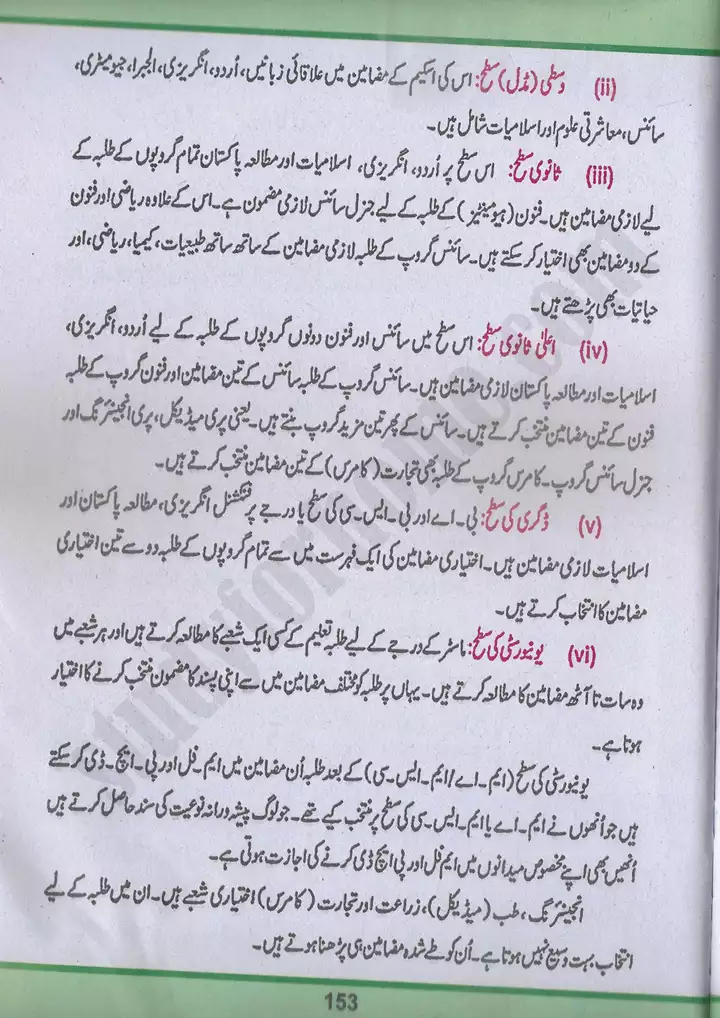 (ii) وسطی (مڈل) سطح: اس کی اسکیم کے مضامین میں علاقائی زبانیں، اُردو، انگریزی، الجبرا، جیومیٹری،
سائنس، معاشرتی علوم اور اسلامیات شامل ہیں۔
(iii) ثانوی سطح: اس سطح پر اُردو، انگریزی، اسلامیات اور مطالعہ پاکستان تمام گروپوں کے طلبہ کے
لیے لازمی مضامین ہیں۔ فنون (ہیومینٹیز) کے طلبہ کے لیے جنرل سائنس لازمی مضمون ہے۔ اس کے علاوہ ریاضی اور فنون
کے دو مضامین بھی اختیار کر سکتے ہیں۔ سائنس گروپ کے طلبہ لازمی مضامین کے ساتھ ساتھ طبیعیات، کیمیا، ریاضی، اور
حیاتیات بھی پڑھتے ہیں۔
(iv) اعلیٰ ثانوی سطح: اس سطح میں سائنس اور فنون دونوں گروپوں کے طلبہ کے لیے اُردو، انگریزی،
اسلامیات اور مطالعہ پاکستان لازمی مضامین ہیں۔ سائنس گروپ کے طلبہ سائنس کے تین مضامین اور فنون گروپ کے طلبہ
فنون کے تین مضامین منتخب کرتے ہیں۔ سائنس کے پھر تین مزید گروپ بنتے ہیں۔ یعنی پری میڈیکل، پری انجینئرنگ اور
جنرل سائنس گروپ۔ کامرس گروپ کے طلبہ بھی تجارت (کامرس) کے تین مضامین منتخب کرتے ہیں۔
(v) ڈگری کی سطح: بی۔ اے اور بی۔ ایس۔ سی کی سطح یا درجے پر فنکشنل انگریزی، مطالعہ پاکستان اور
اسلامیات لازمی مضامین ہیں۔ اختیاری مضامین کی ایک فہرست میں سے تمام گروپوں کے طلبہ دو سے تین اختیاری
مضامین کا انتخاب کرتے ہیں۔
(vi) یونیورسٹی کی سطح: ماسٹر کے درجے کے لیے طلبہ تعلیم کے کسی ایک شعبے کا مطالعہ کرتے ہیں اور ہر شعبے میں
وہ سات تا آٹھ مضامین کا مطالعہ کرتے ہیں۔ یہاں پر طلبہ کو مختلف مضامین میں سے اپنی پسند کا مضمون منتخب کرنے کا اختیار
ہوتا ہے۔
یونیورسٹی کی سطح (ایم۔ اے/ ایم۔ ایس۔ سی) کے بعد طلبہ اُن مضامین میں ایم۔ فل اور پی۔ ایچ۔ ڈی کر سکتے
ہیں جو اُنھوں نے ایم۔ اے یا ایم۔ ایس۔ سی کی سطح پر منتخب کیے تھے۔ جو لوگ پیشہ ورانہ نوعیت کی سند حاصل کرتے ہیں
اُنھیں بھی اپنے مخصوص میدانوں میں ایم فل اور پی ایچ ڈی کرنے کی اجازت ہوتی ہے۔
انجینئرنگ، طب (میڈیکل)، زراعت اور تجارت (کامرس) اختیاری شعبے ہیں۔ ان میں طلبہ کے لیے
انتخاب بہت وسیع نہیں ہوتا ہے۔ اُن کو طے شدہ مضامین ہی پڑھنا ہوتے ہیں۔
153
studyforhome.com